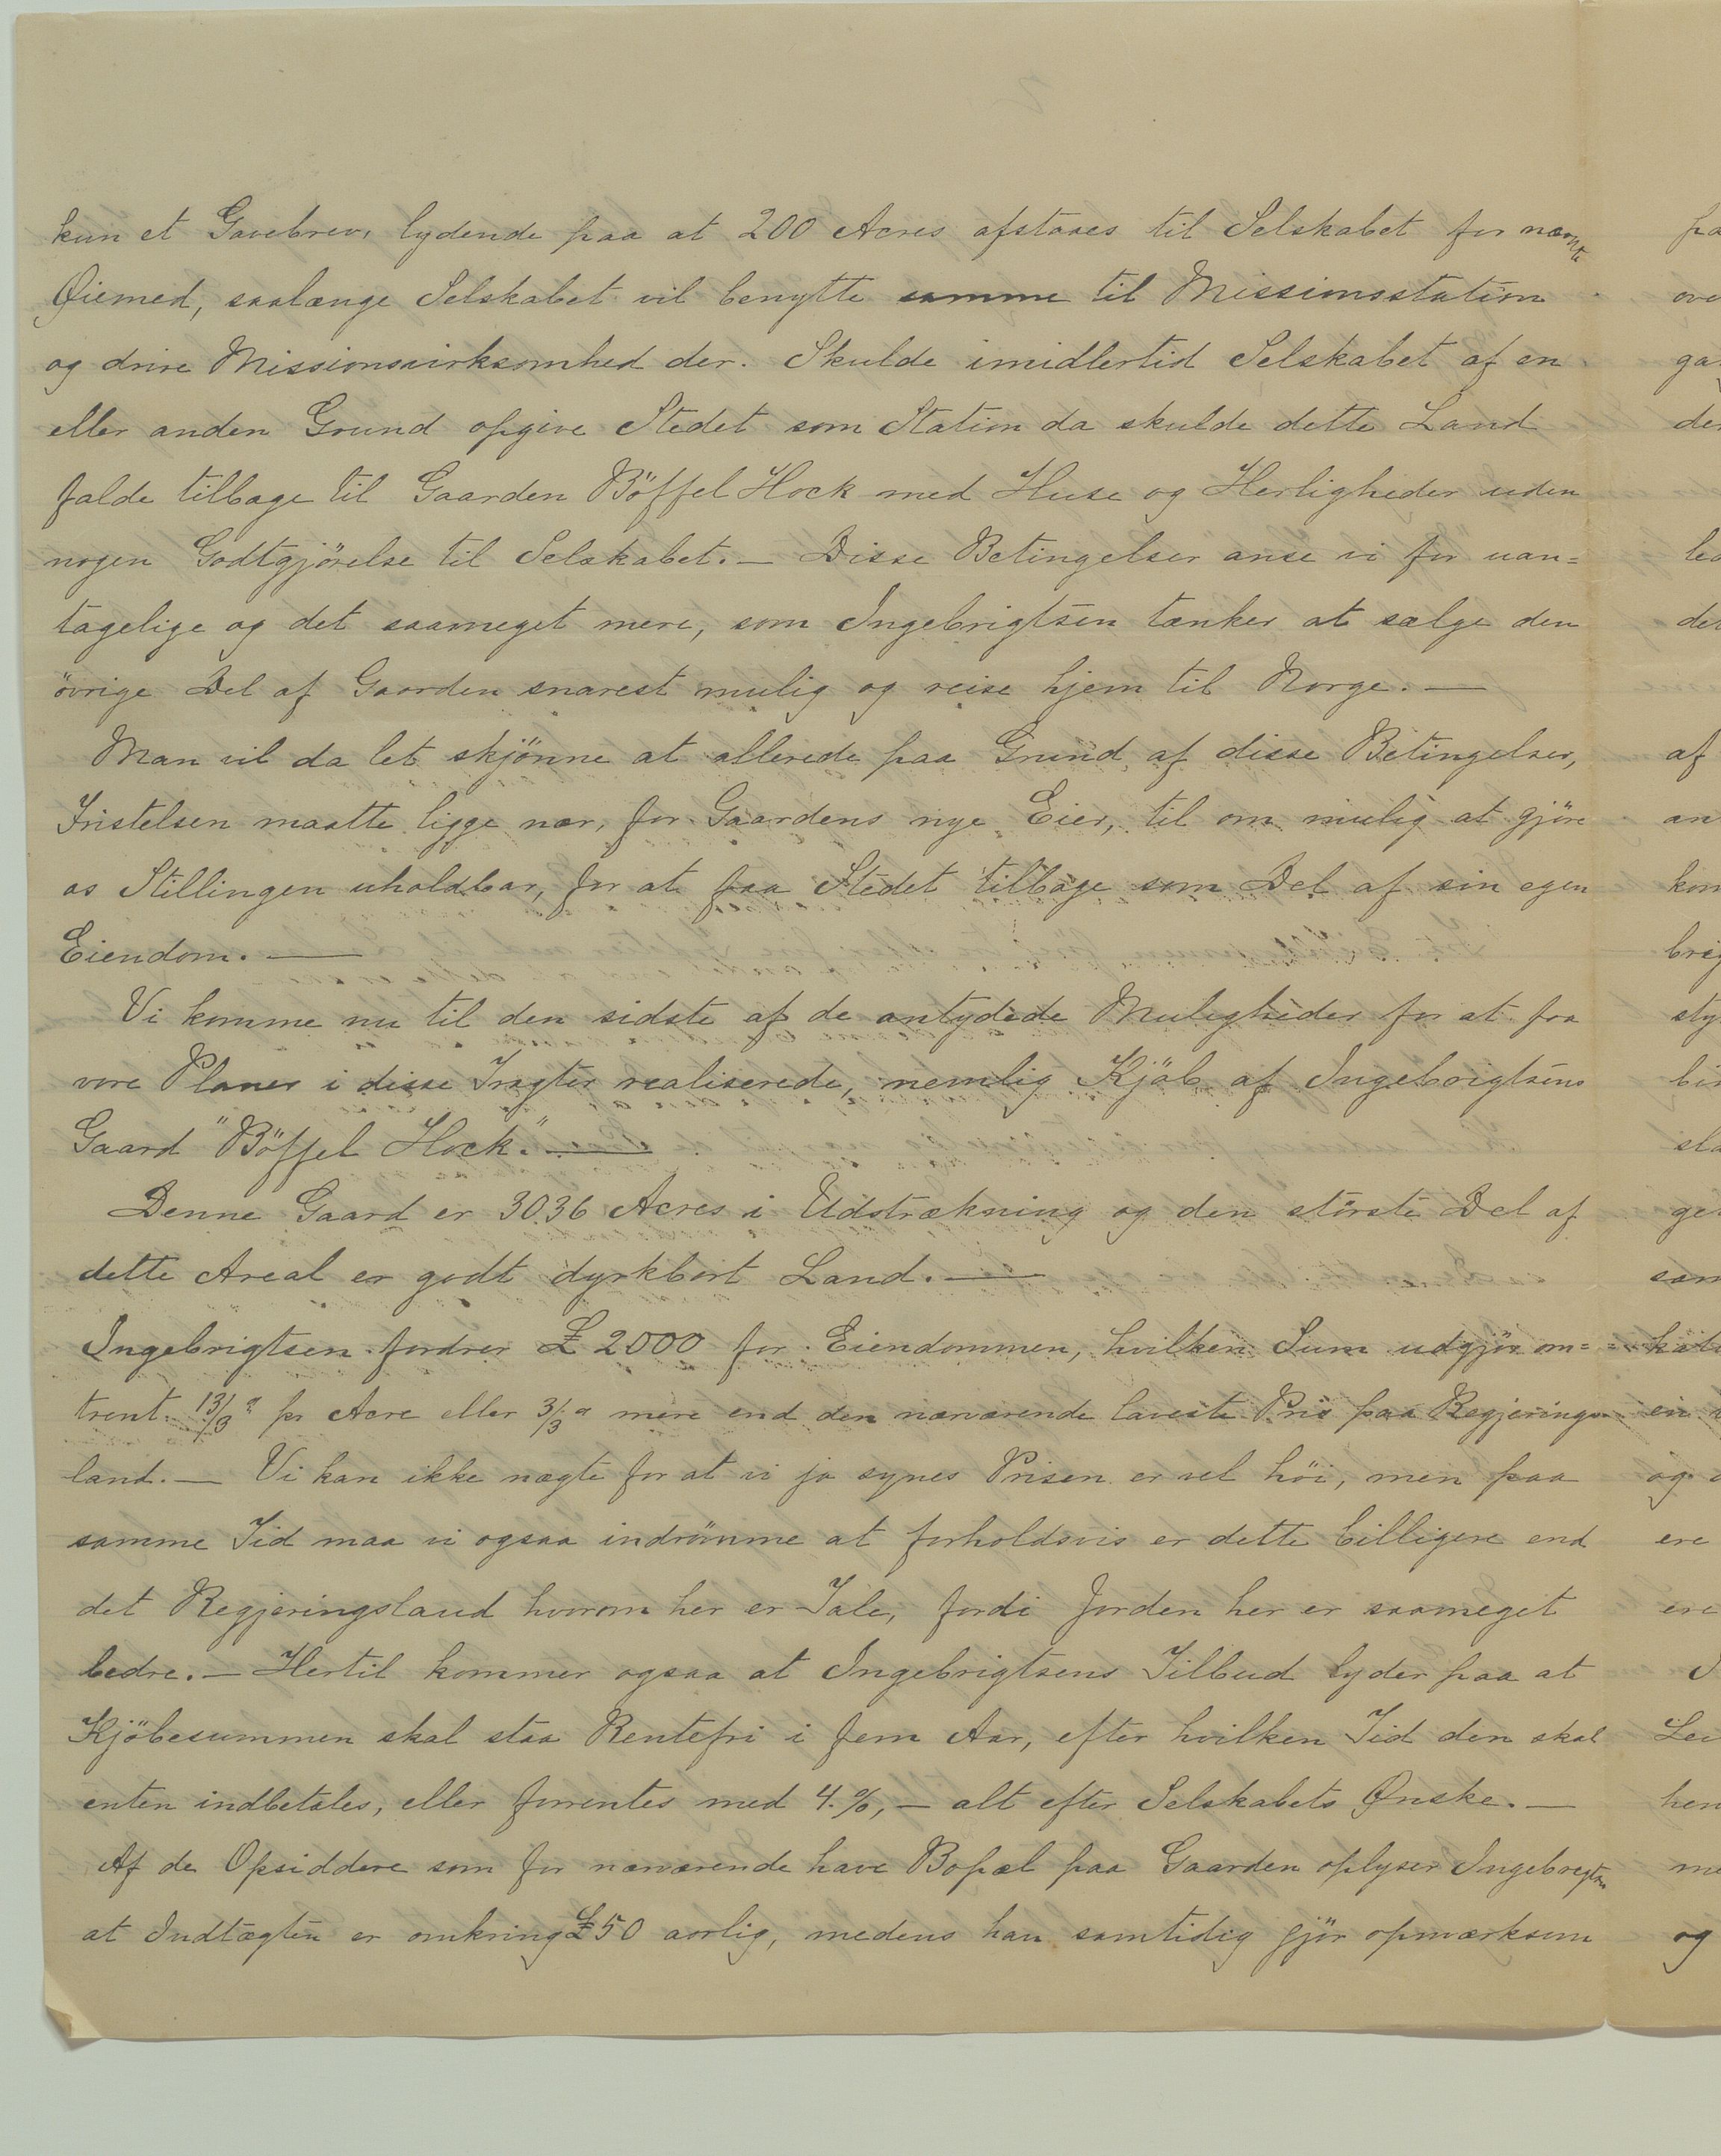 kun et Gavebrev, lydende paa at 200 Acres afstaaes til Selskabet for nævnte
Øiemed, saalænge Selskabet vil benytte samme til Missionsstation
og drive Missionsvirksomhed der. Skulde imidlertid Selskabet af en
eller anden Grund opgive Stedet som Station da skulde dette Land
falde tilbage til Gaarden Böffel Hock med Huse og Herligheder uden
nogen Godtgjörelse til Selskabet. — Disse Betingelser anse vi for uan=
tagelige og det saameget mere, som Ingebrigtsen tænker at sælge den
övrige Del af Gaarden snarest mulig og reise hjem til Norge. —
Man vil da let skjönne at allerede paa Grund af disse Betingelser,
Fristelsen maatte ligge nær, for Gaardens nye Eier, til om mulig at gjöre
os Stillingen uholdbar, for at faa Stedet tilbage som Del af sin egen
Eiendom. —
Vi komme nu til den sidste af de antydede Muligheder for at faa
vore Planer i disse Tragter realiserede, nemlig Kjöb af Ingebrigtsens
Gaard "Böffel Hock". —
Denne Gaard er 3036 Acres i Udstrækning og den störste Del af
dette Areal er godt dyrkbart Land. —
Ingebrigtsen fordrer £ 2000 for Eiendommen, hvilken Sum udgjör om=
trent 13/3 pr Acre eller 3/3 mere end den nærværende laveste Pris paa Regjerings-
land. — Vi kan ikke nægte for at vi jo synes Prisen er vel höi, men paa
samme Tid maa vi ogsaa indrömme at forholdsvis er dette billigere end
det Regjeringsland hvorom her er Tale, fordi Jorden her er saameget
bedre. — Hertil kommer ogsaa at Ingebrigtsens Tilbud lyder paa at
Kjöbesummen skal staa Rentefri i fem Aar, efter hvilken Tid den skal
enten indbetales, eller forrentes med 4.%, — alt efter Selskabets Ønske. —
Af de Opsiddere som for nærværende have Bopæl paa Gaarden oplyser Ingebrigtsen
at Indtægten er omkring £50 aarlig, medens han samtidig gjör opmærksom